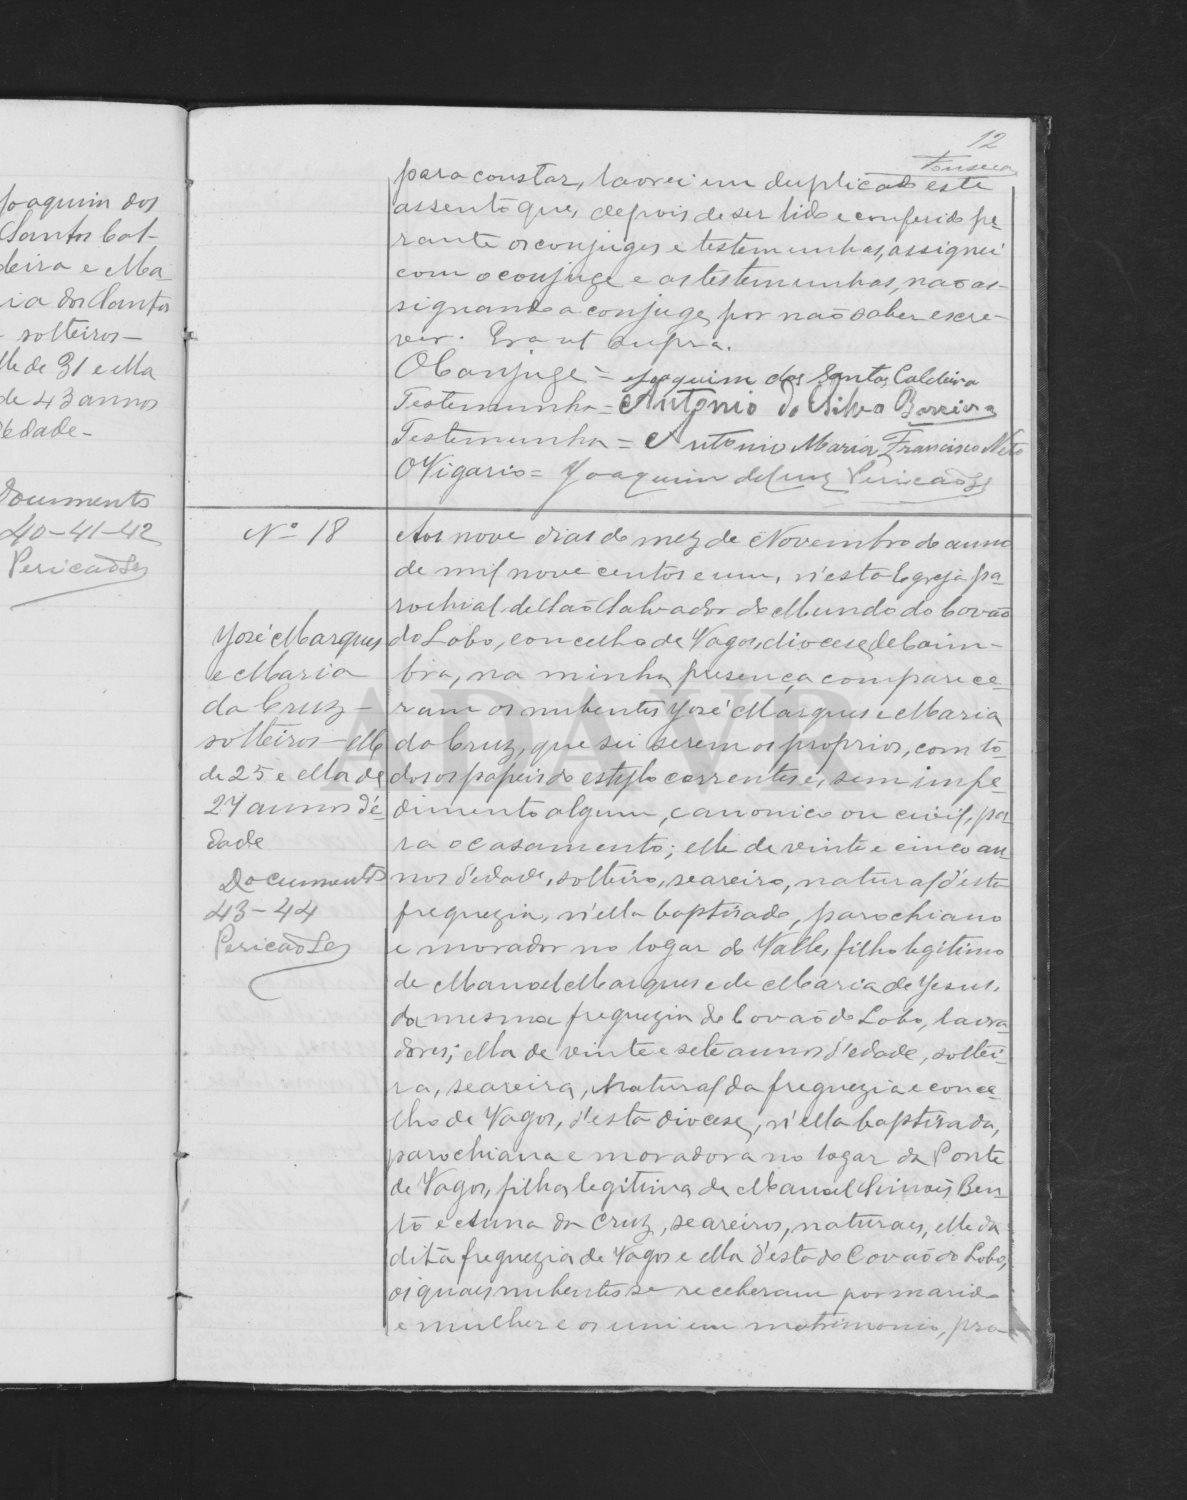 Joaquim dos
Santos Cal-
deira e Ma
ria dos Santos
- solteiros -
elle de 31 e ella
de 43 annos
d'edade -
Documentos
40-41-42
Pericão Lz
12
Fonseca
para constar, lavrei em duplicado este
assento que, depois de ser lido e conferido pe-
rante os conjuges e testemunhas, assignei
com o conjuge e as testemunhas, não as-
signando a conjuge, por não saber escre-
ver. Era ut supra.
O Conjuge = Joaquim dos Santos Caldeira
Testemunha = Antonio da Silva Barreira
Testemunha = Antonio Maria Francisco Neto
O Vigario = Joaquim da Cruz Pericão Lz
Nº 18
José Marques
e Maria
da Cruz -
solteiros - elle
de 25 e ella de
27 annos d'e-
dade
Documentos
43-44
Pericão Lz
Aos nove dias do mez de Novembro do anno
de mil nove centos e um, n'esta Egreja pa-
rochial de São Salvador do Mundo do Covão
do Lobo, concelho de Vagos, diocese de Coim-
bra, na minha presença comparece-
ram os nubentes José Marques e Maria
da Cruz, que sei serem os proprios, com to-
dos os papeis do estylo correntes e, sem impe-
dimento algum, canonico ou civil, pa-
ra o casamento; elle de vinte e cinco an-
nos d'edade, solteiro, seareiro, natural d'esta
freguezia, n'ella baptisado, parochiano
e morador no logar do Valle, filho legitimo
de Manoel Marques e de Maria de Jesus,
da mesma freguezia do Covão do Lobo, lavra-
dores; ella de vinte e sete annos d'edade, soltei-
ra, seareira, natural da freguezia e conce-
lho de Vagos, d'esta diocese, n'ella baptisada,
parochiana e moradora no logar da Ponte
de Vagos, filha legitima de Manoel Simões Ben-
to e Anna da Cruz, seareiros, naturaes, elle da
dita freguezia de Vagos e ella d'esta do Covão do Lobo,
os quaes nubentes se receberam por marido
e mulher e os uni em matrimonio, pro-
ADAVR